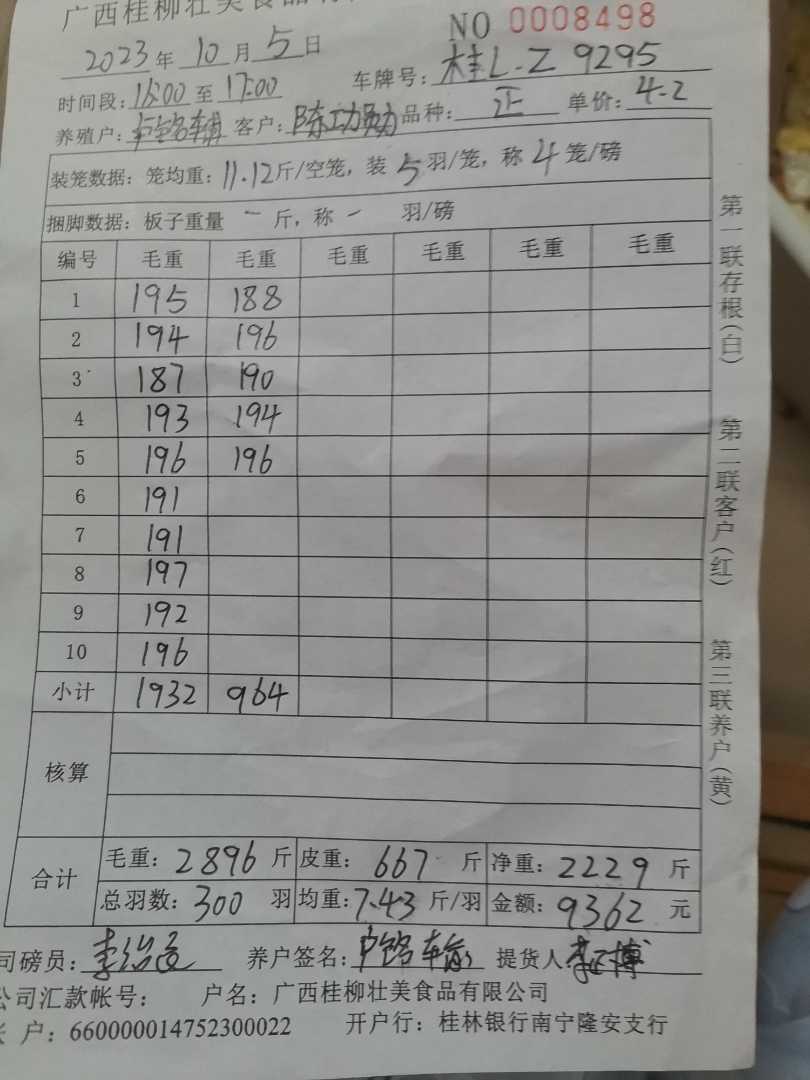 广西桂柳壮美食品有
NO 0008498
2023年10月5日
时间段:16:00至17:00 车牌号:桂L-Z9295
养殖户:卢铭辅 客户:陈功勋 品种:正 单价:4.2
装笼数据:笼均重:11.12斤/空笼,装5羽/笼,称4笼/磅
捆脚数据:板子重量 - 斤,称 - 羽/磅
编号 毛重 毛重 毛重 毛重 毛重 毛重
1 195 188
2 194 196
3 187 190
4 193 194
5 196 196
6 191
7 191
8 197
9 192
10 196
小计 1932 964
核算
合计 毛重:2896斤 皮重:667斤 净重:2229斤
总羽数:300羽 均重:7.43斤/羽 金额:9362元
司磅员: 养户签名:卢铭辅 提货人
公司汇款帐号: 户名:广西桂柳壮美食品有限公司
户:660000014752300022 开户行:桂林银行南宁隆安支行
第一联存根(白) 第二联客户(红) 第三联养户(黄)